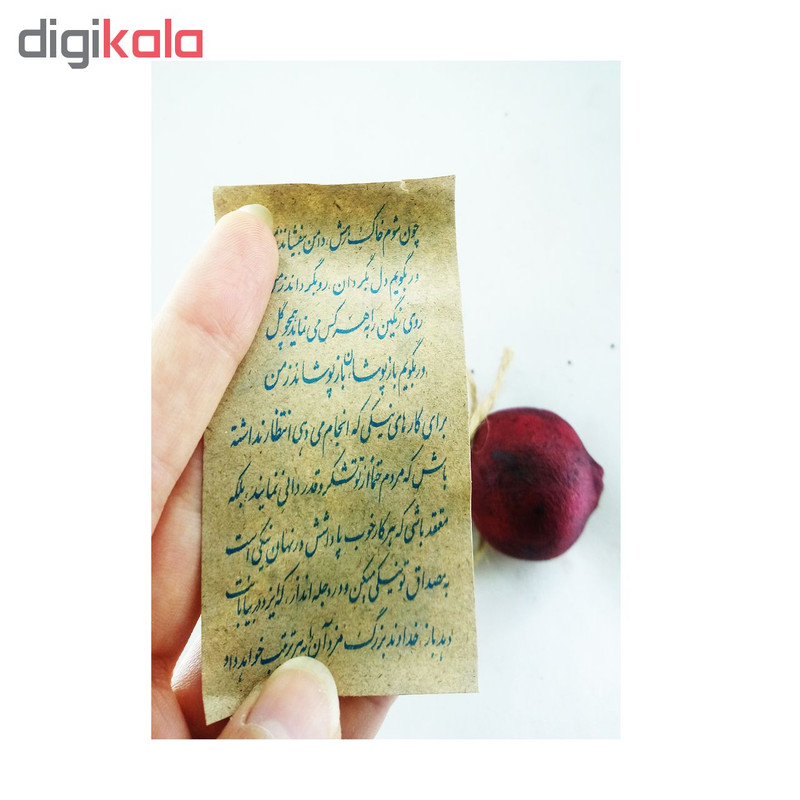 digikala
چون شوم خاک رهش، دامن بیفشاند ز
ور بگویم دل بگردان، رو بگرداند ز من
روی رنگین را به هر کس می نماید همچو گل
ور بگویم باز پوشان باز پوشاند ز من
برای کارهای نیکی که انجام می دهی انتظار نداشته
باش که مردم حتما از تو تشکر و قدردانی نمایند، بلکه
معتقد باشی که هر کار خوب پاداشش در نهان نیکی است
به مصداق تو نیکی میکن و در دجله انداز، که ایزد در بیابانت
دهد باز خداوند بزرگ مزد آن را به هر ترتیب خواهد داد